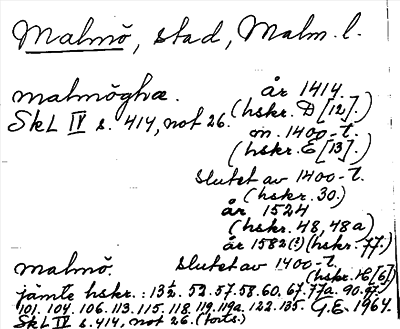 Malmö, stad, Malm. l.
malmöghæ. år 1414.
SkL IV s. 414, not 26. (hskr. D [12].)
m. 1400-t.
(hskr. E [13].)
slutet av 1400-t.
(hskr. 30.)
år 1524
(hskr. 48, 48a)
år 1582(?) (hskr. 77.)
malmö. slutet av 1400-t.
(hskr. [6])
jämte hskr.: 13½. 52. 57. 58. 60. 67. 77a. 90. 97.
101. 104. 106. 113. 115. 118. 119. 119a. 122. 135. G.E. 1964.
SkL IV s. 414, not 26. (forts.)